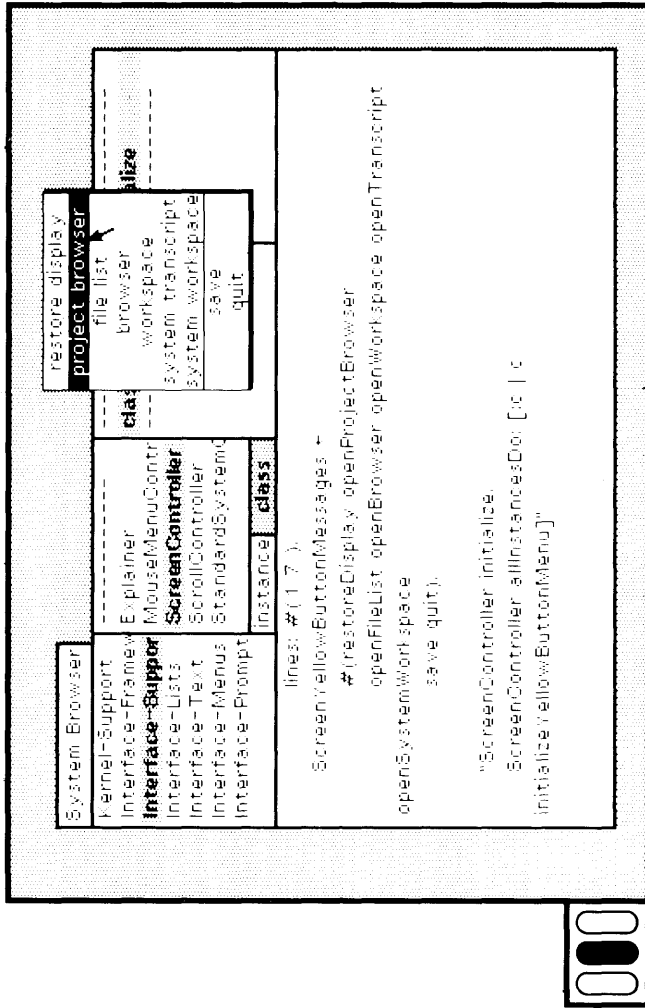 System Browser
Kernel-Support
Interface-Framew
Interface-Suppor
Interface-Lists
Interface-Text
Interface-Menus
Interface-Prompt
----------
Explainer
MouseMenuContr
ScreenController
ScrollController
StandardSystemC
instance
class
----------
clas
alize
----------
restore display
project browser
file list
browser
workspace
system transcript
system workspace
save
quit
lines: #( 1 7 ).
ScreenYellowButtonMessages ←
#(restoreDisplay openProjectBrowser
openFileList openBrowser openWorkspace openTranscript
openSystemWorkspace
save quit).
"ScreenController initialize.
ScreenController allInstancesDo: [:c | c
initializeYellowButtonMenu]"